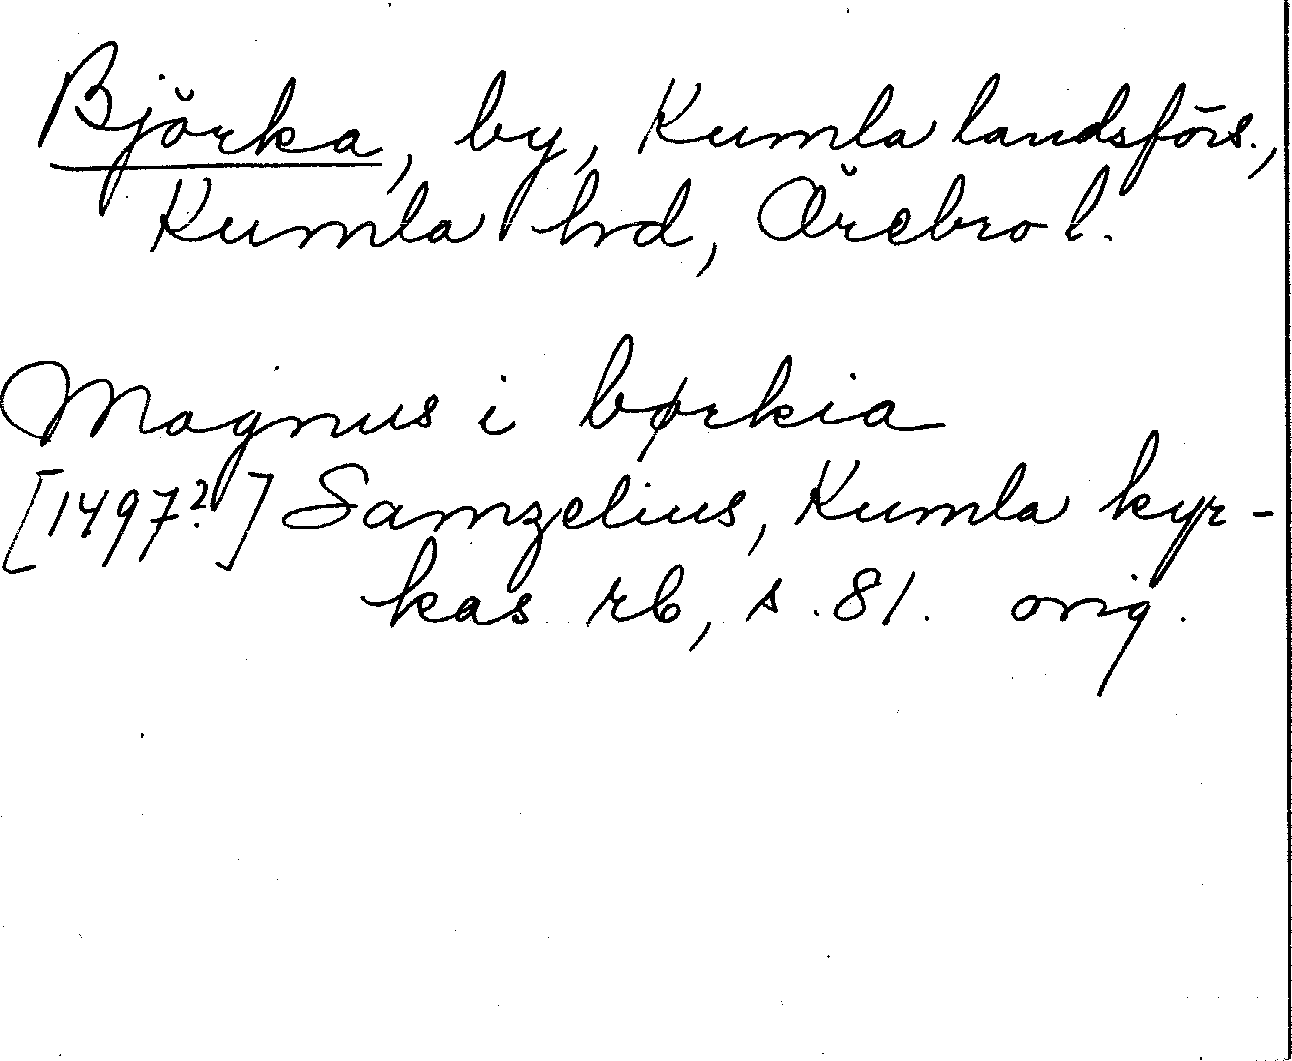 Björka, by, Kumla landsförs.,
Kumla hd, Örebro l.
Magnus i børkia
[1497?] Samzelius, Kumla kyr-
kas rb, s. 81. orig.